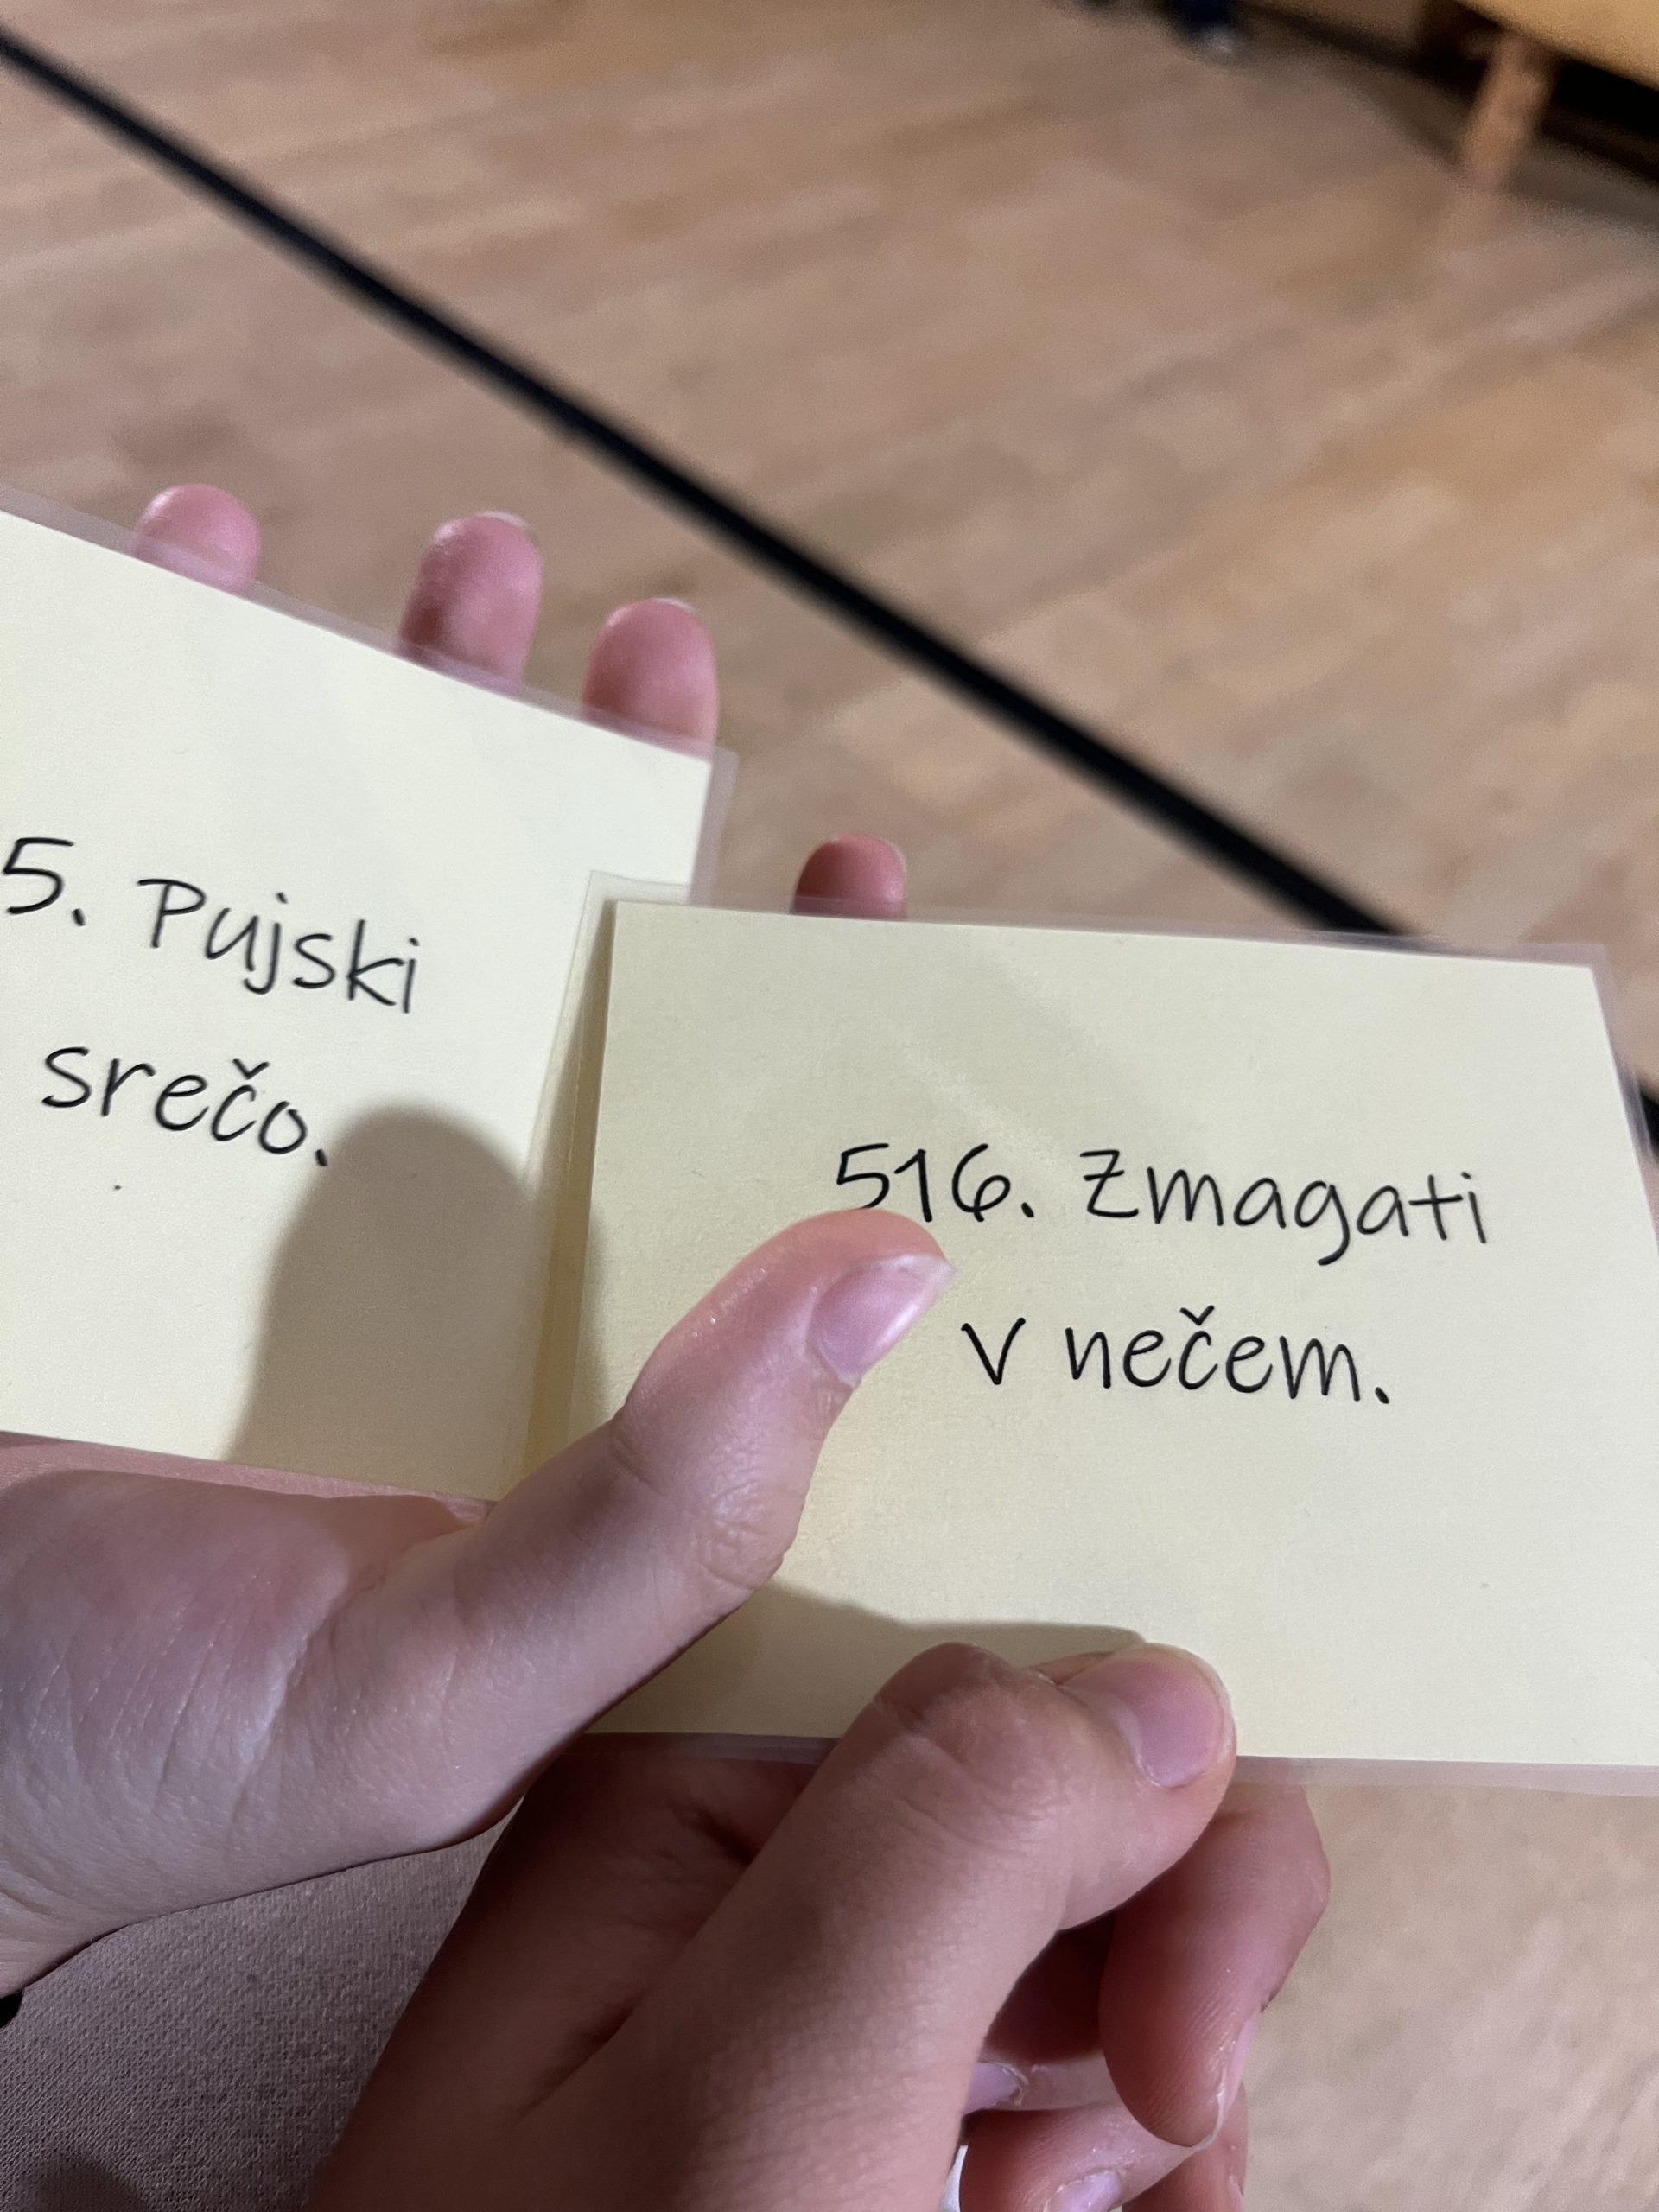 5. Pujski
srečo.
516. Zmagati
v nečem.